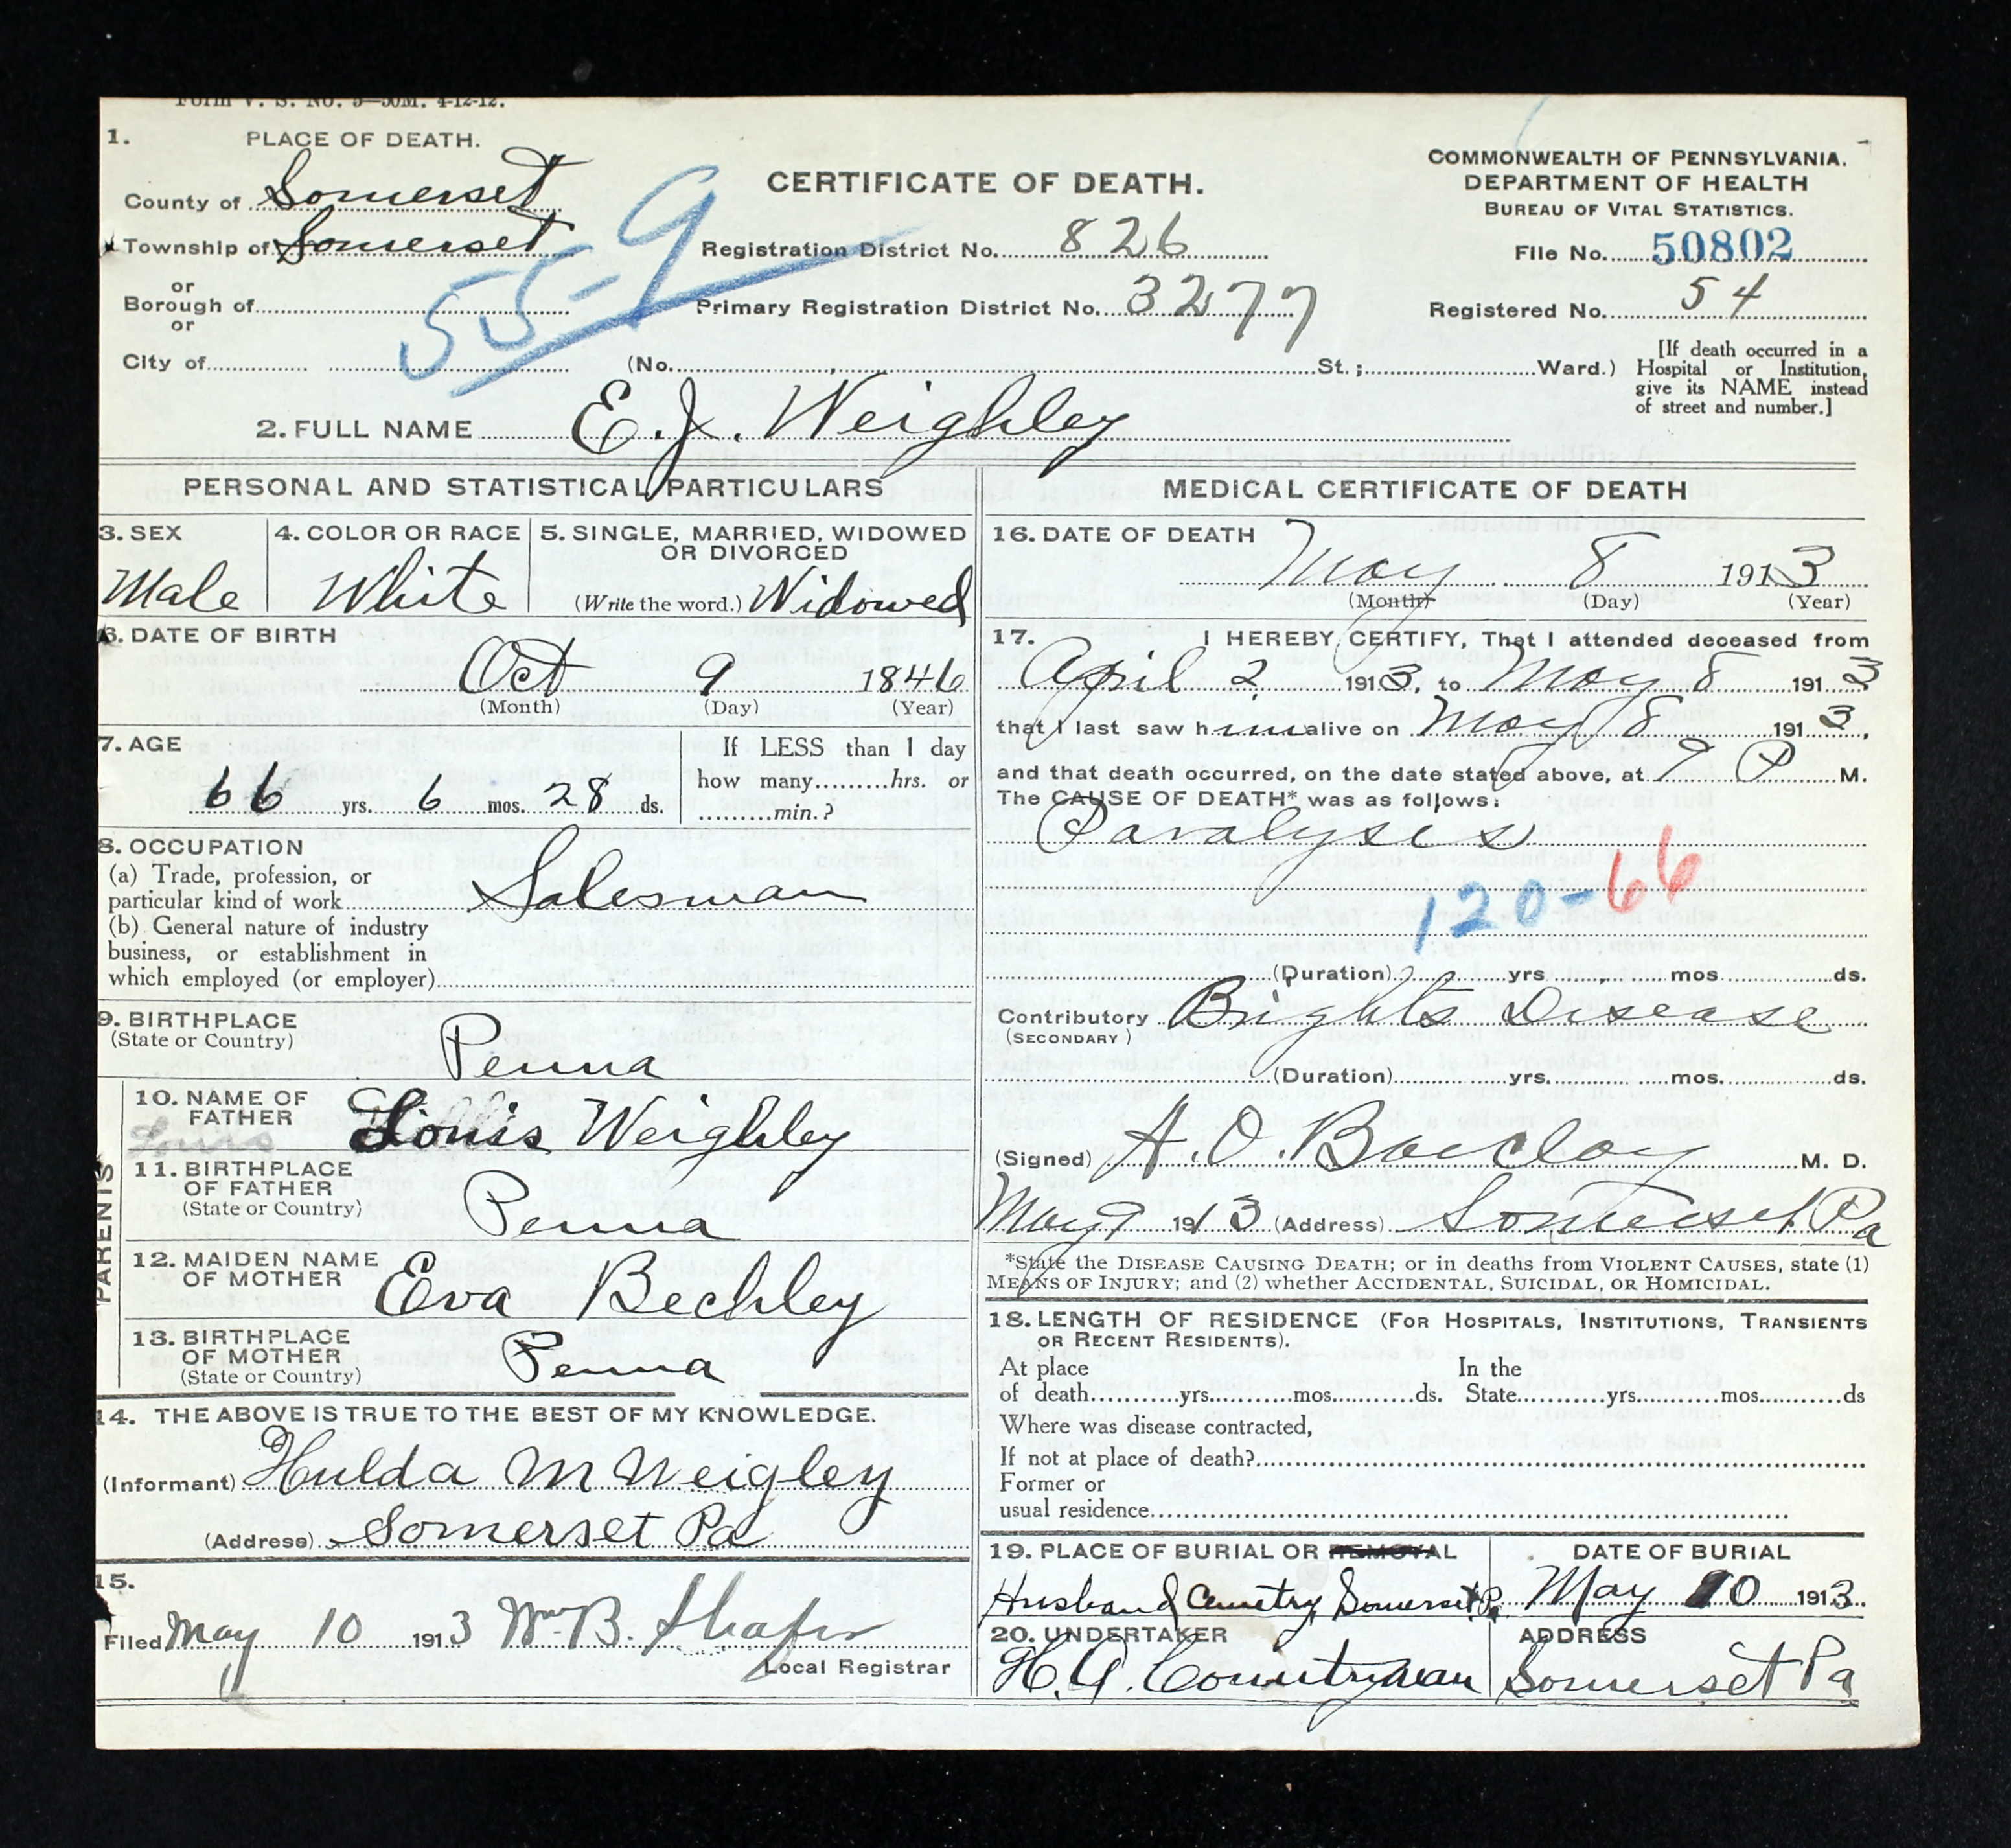 Form V. S. No. 5—50M. 4-12-12.
1. PLACE OF DEATH.
County of Somerset
Township of Somerset
or
Borough of
or
City of
55-9
CERTIFICATE OF DEATH.
Registration District No. 826
Primary Registration District No. 3277
(No. , St.; Ward.)
COMMONWEALTH OF PENNSYLVANIA.
DEPARTMENT OF HEALTH
BUREAU OF VITAL STATISTICS.
File No. 50802
Registered No. 54
[If death occurred in a
Hospital or Institution,
give its NAME instead
of street and number.]
2. FULL NAME E. J. Weighley
PERSONAL AND STATISTICAL PARTICULARS
3. SEX
Male
4. COLOR OR RACE
White
5. SINGLE, MARRIED, WIDOWED
OR DIVORCED
(Write the word.) Widowed
6. DATE OF BIRTH
Oct 9 1846
(Month) (Day) (Year)
7. AGE
66 yrs. 6 mos. 28 ds.
If LESS than 1 day
how many hrs. or
min.?
8. OCCUPATION
(a) Trade, profession, or
particular kind of work Salesman
(b) General nature of industry
business, or establishment in
which employed (or employer)
9. BIRTHPLACE
(State or Country)
Penna
PARENTS
10. NAME OF
FATHER
Louis Louis Weighley
11. BIRTHPLACE
OF FATHER
(State or Country)
Penna
12. MAIDEN NAME
OF MOTHER
Eva Bechley
13. BIRTHPLACE
OF MOTHER
(State or Country)
Penna
14. THE ABOVE IS TRUE TO THE BEST OF MY KNOWLEDGE.
(Informant) Hulda M Weigley
(Address) Somerset Pa
15.
Filed May 10 1913 Wm B. Shafer
Local Registrar
MEDICAL CERTIFICATE OF DEATH
16. DATE OF DEATH
May 8 1913
(Month) (Day) (Year)
17. I HEREBY CERTIFY, That I attended deceased from
April 2 1913, to May 8 1913
that I last saw him alive on May 8 1913,
and that death occurred, on the date stated above, at 9 P M.
The CAUSE OF DEATH* was as follows:
Paralysis
120-66
(Duration) yrs. mos. ds.
Contributory Brights Disease
(SECONDARY)
(Duration) yrs. mos. ds.
(Signed) A. O. Barclay M. D.
May 9 1913 (Address) Somerset Pa
*State the DISEASE CAUSING DEATH; or in deaths from VIOLENT CAUSES, state (1)
MEANS OF INJURY; and (2) whether ACCIDENTAL, SUICIDAL, OR HOMICIDAL.
18. LENGTH OF RESIDENCE (FOR HOSPITALS, INSTITUTIONS, TRANSIENTS
OR RECENT RESIDENTS).
At place In the
of death yrs. mos. ds. State yrs. mos. ds
Where was disease contracted,
If not at place of death?
Former or
usual residence
19. PLACE OF BURIAL OR REMOVAL
Husband Cemetry Somerset Pa.
DATE OF BURIAL
May 10 1913.
20. UNDERTAKER
H. A. Countryman
ADDRESS
Somerset Pa